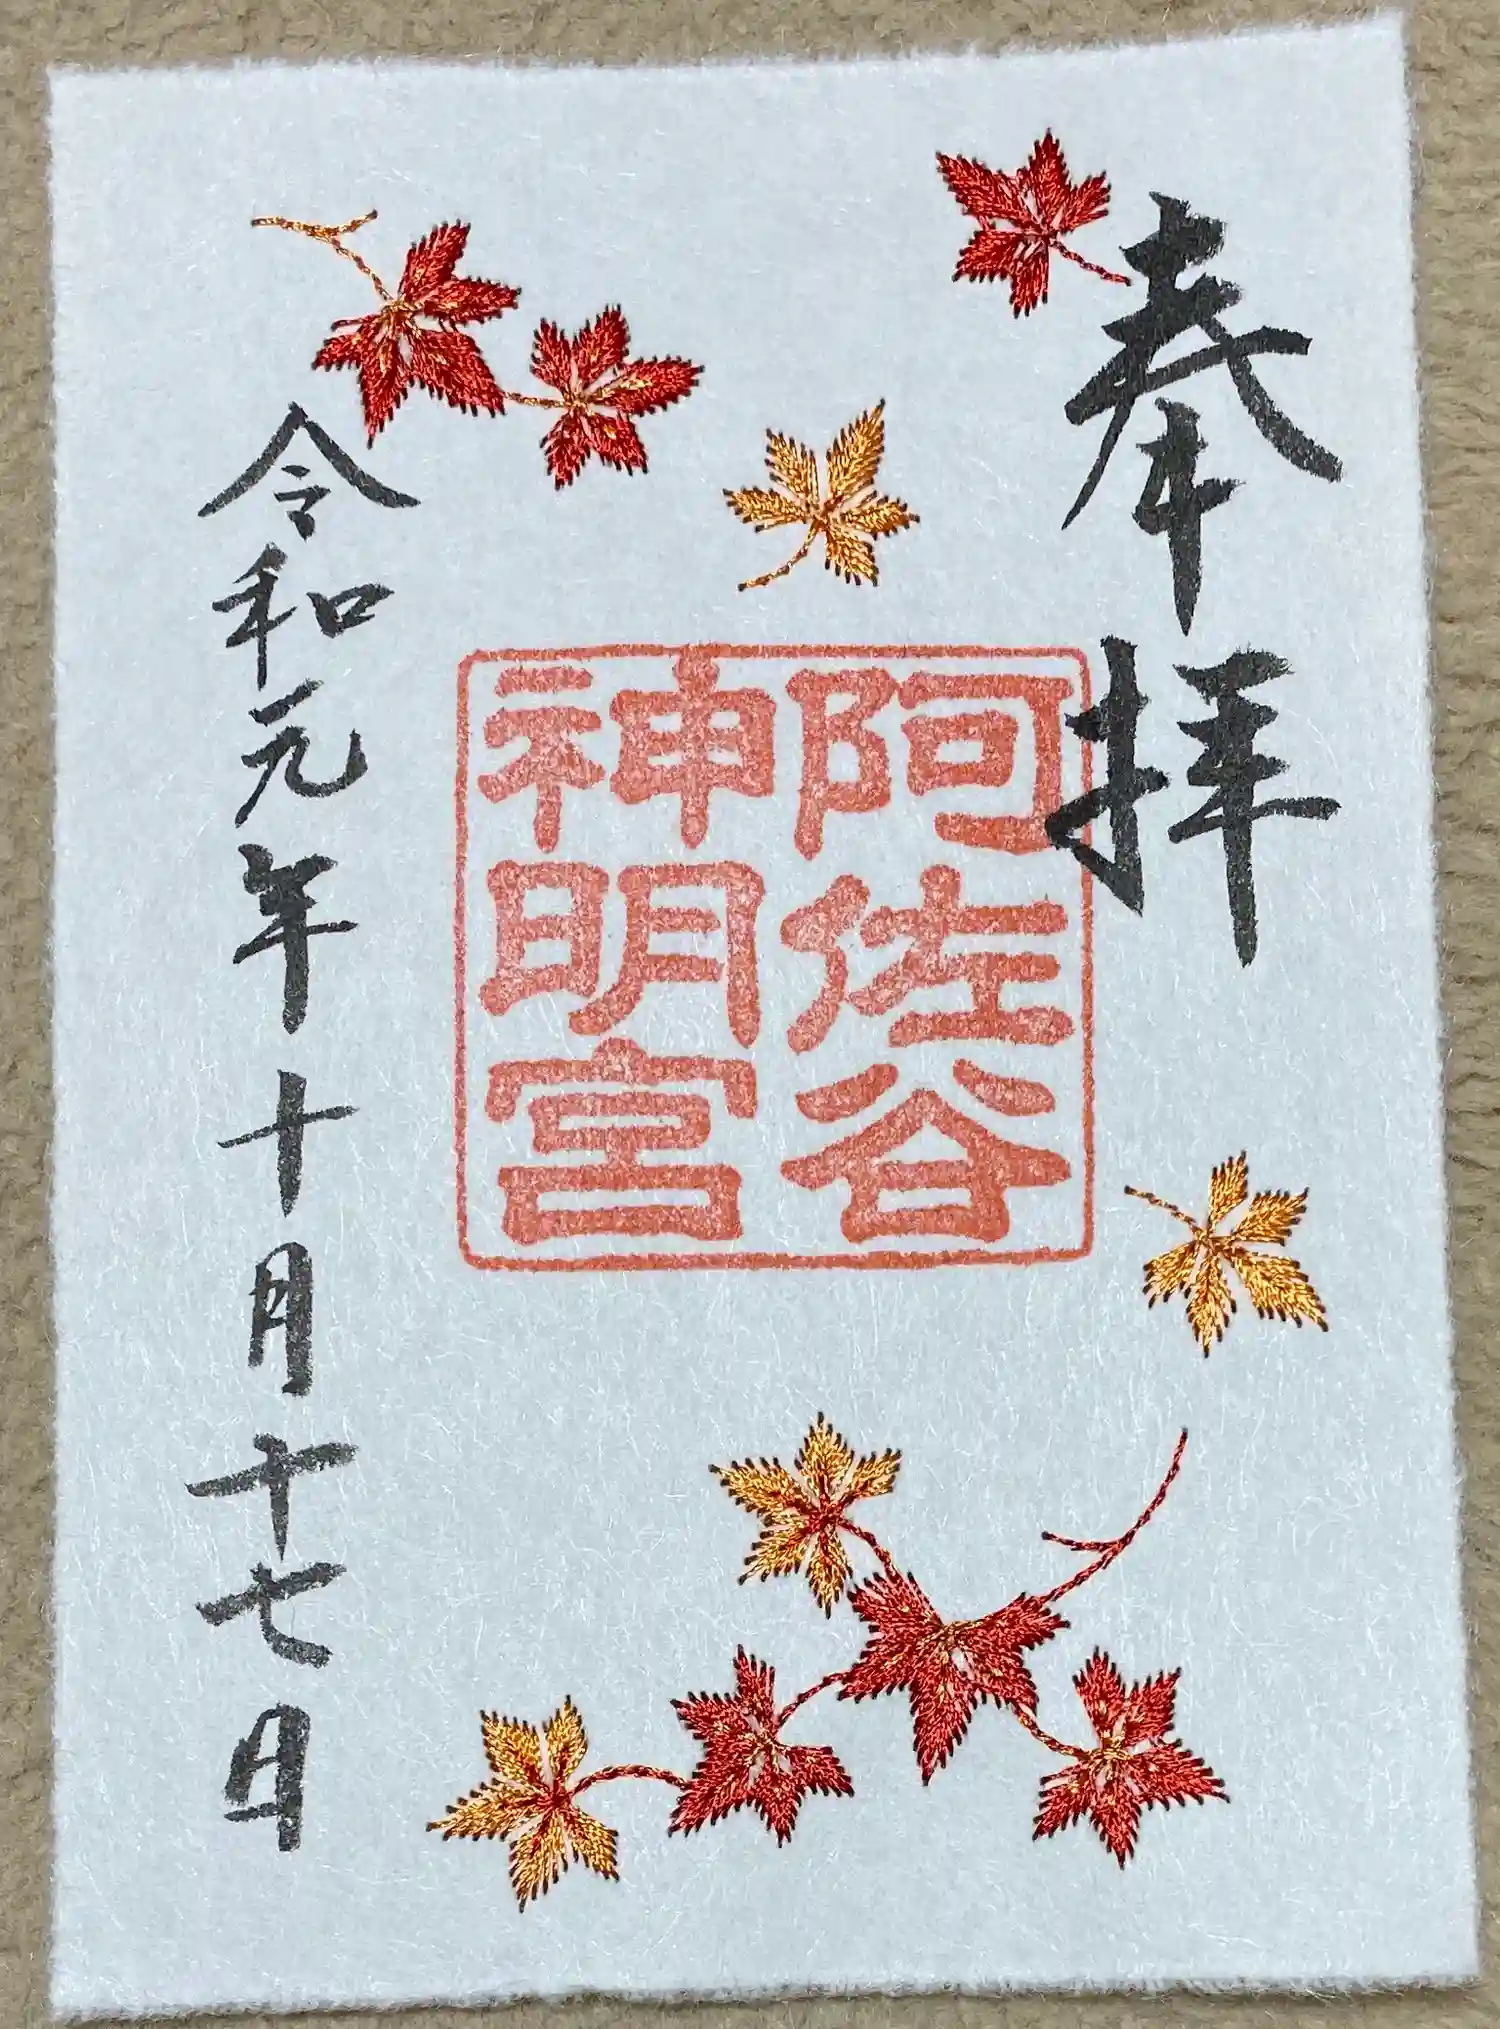 奉拝
阿佐谷
神明宮
令和元年十月十七日